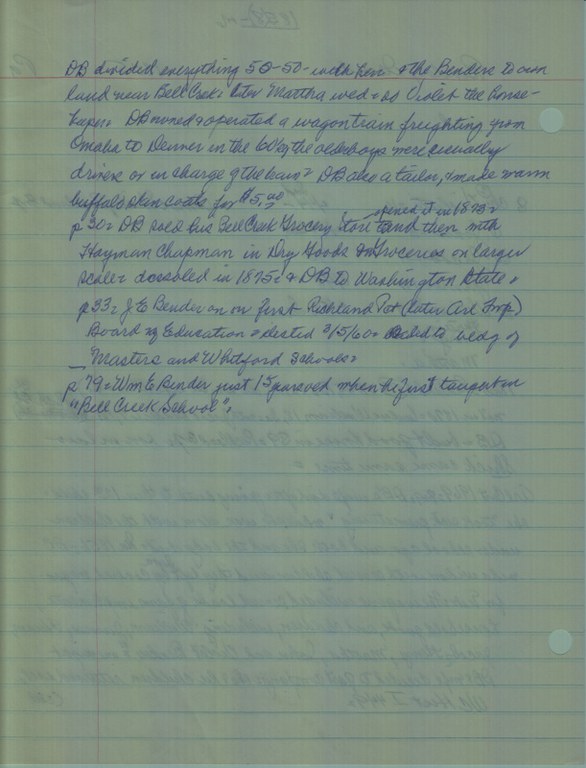 DB divided everything 50-50- with her & the Benders to own
land near Bell Crek: later Martha wed & so Violet the house-
keeper: DB owned & operated a wagon train freighting from
Omaha to Denver in the 60's, the older boys were usually
drivers or in charge of the train: DB also a tailor, & made warm
buffalo skin coats for $5.00
opened it in 1873:
p 30: DB sold his Bell Creek Grocery Store and then with
Hayman Chapman in Dry Goods & Groceries on larger
scale: dissoled in 1875: & DB to Washington State.
p 33: J E Bender on on first Richland Pct (later Arl Twp)
Board of Education elected 3/5/60: to bldg of
Masters and Whitford Schools:
p 79: Wm E Bender just 15 yrs old when he first taught in
"Bell Creek School":